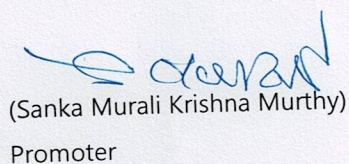 (Sanka Murali Krishna Murthy)
Promoter